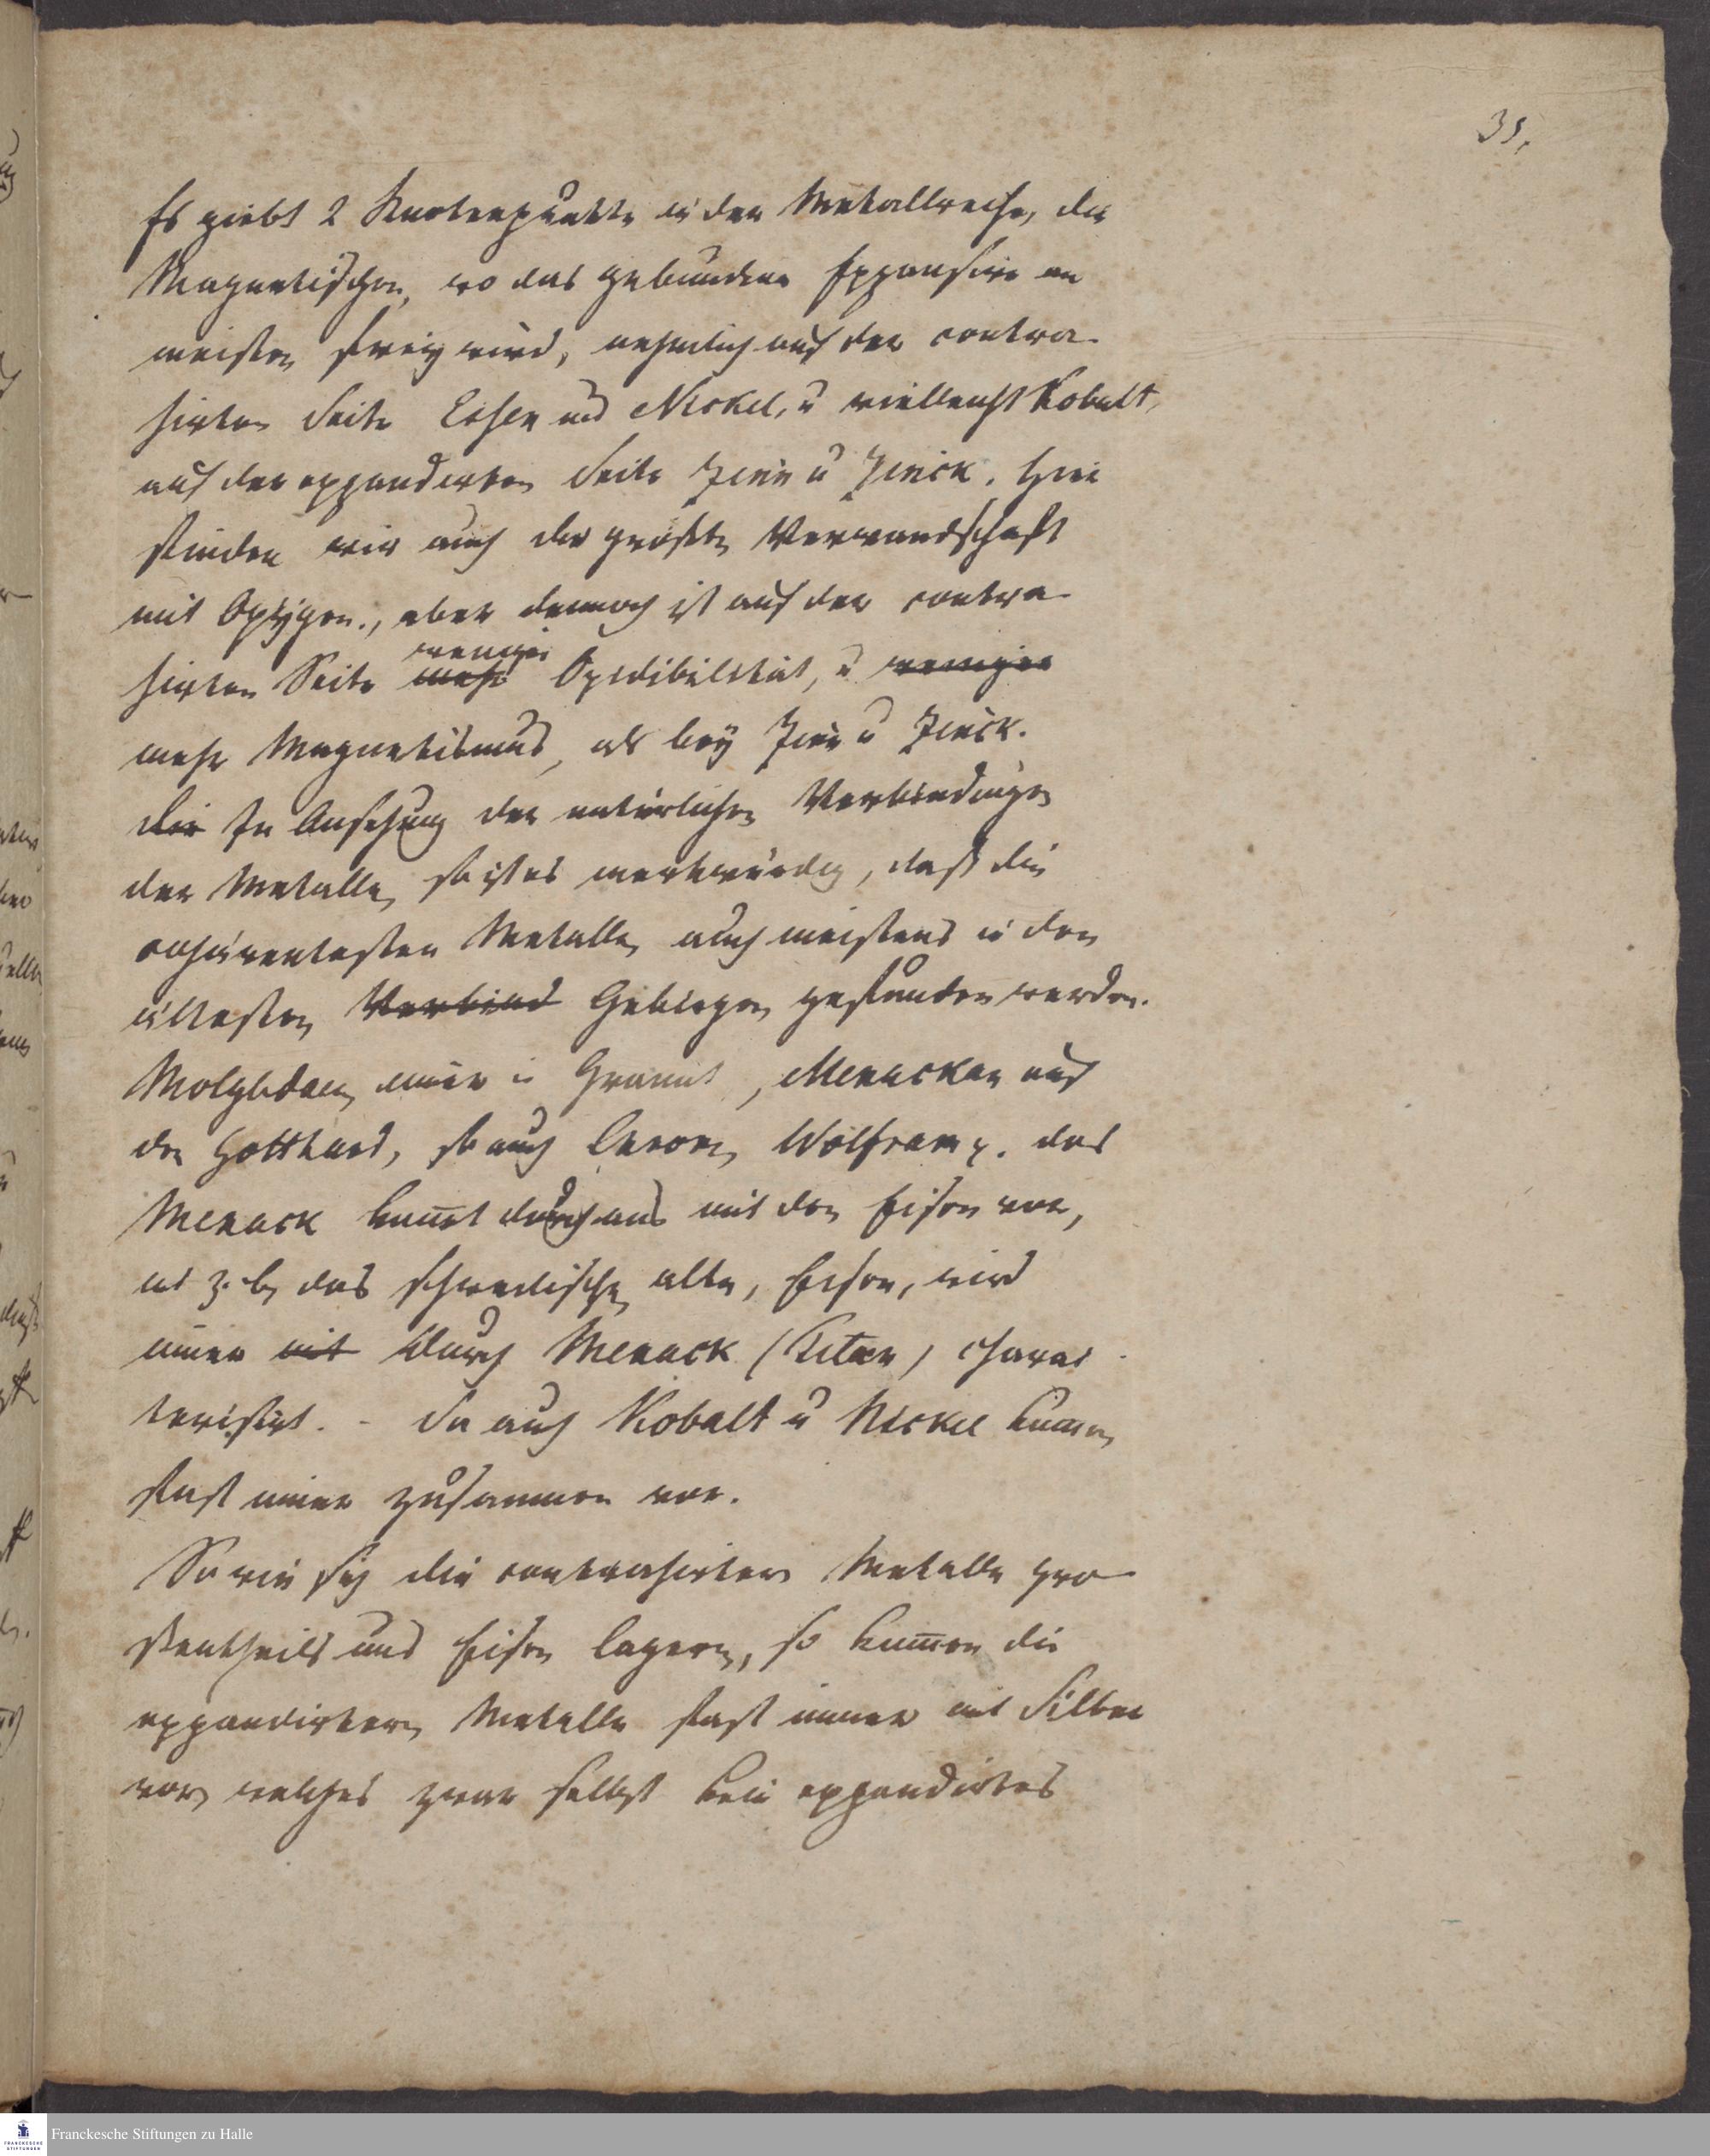 31,
Es giebt 2 Knotenpunkte in der Metallreihe, die
Magnetischen, wo das gebundene Expansive am
meisten frey wird, nehmlich auf der contra-
hirten Seite Eisen und Nickel, u vielleicht Kobalt,
auf der expandirten Seite Zinn u Zinck. Hier
finden wir auch die größte Verwandschaft
mit Oxygen., aber dennoch ist auf der contra-
weniger
hirten Seite mehr Oxidibilität, u weniger
mehr Magnetismus, als bey Zinn u Zinck.
Die In Ansehung der natürlichen Verbindungen
der Metalle, so ist es merkwürdig, daß die
cohärentesten Metalle auch meistens in den
ältesten Verbind Gebirgen gefunden werden.
Molybdaen immer in Granit, Menackan auf
den Gotthard, so auch Wolfram. das
Menack kommt durchaus mit den Eisen vor,
z. b. das schwedische alte, Eisen, wird
immer mit durch Menack (Titan) charac-
terisirt. - So auch Kobalt u Nickel kommen
fast immer zusammen vor.
So wie sich die contrahirten Metalle grö-
ßentheils ums Eisen lagern, so kommen die
expandirtern Metalle fast immer mit Silber
vor, welches zwar selbst kein expandirtes
Franckesche Stiftungen zu Halle
FRANCKESCHE
STIFTUNGEN